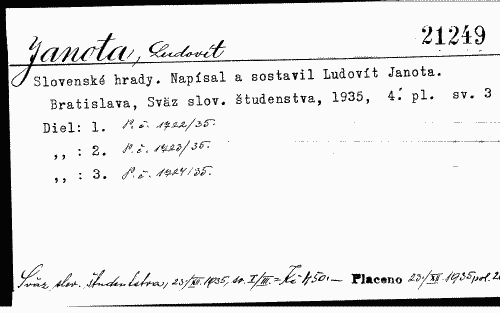 21249
Janota, Ludovít
Slovenské hrady. Napísal a sostavil Ludovít Janota.
Bratislava, Sväz slov. študenstva, 1935, 4° pl. sv. 3
Diel: 1. P. č. 1422/35.
,, : 2. P. č. 1423/35.
,, : 3. P. č. 1424/35.
Sväz slov. študentstva, 23/XII. 1935, sv. I/III. = Kč 450.— Placeno 23./XII. 1935, pol.